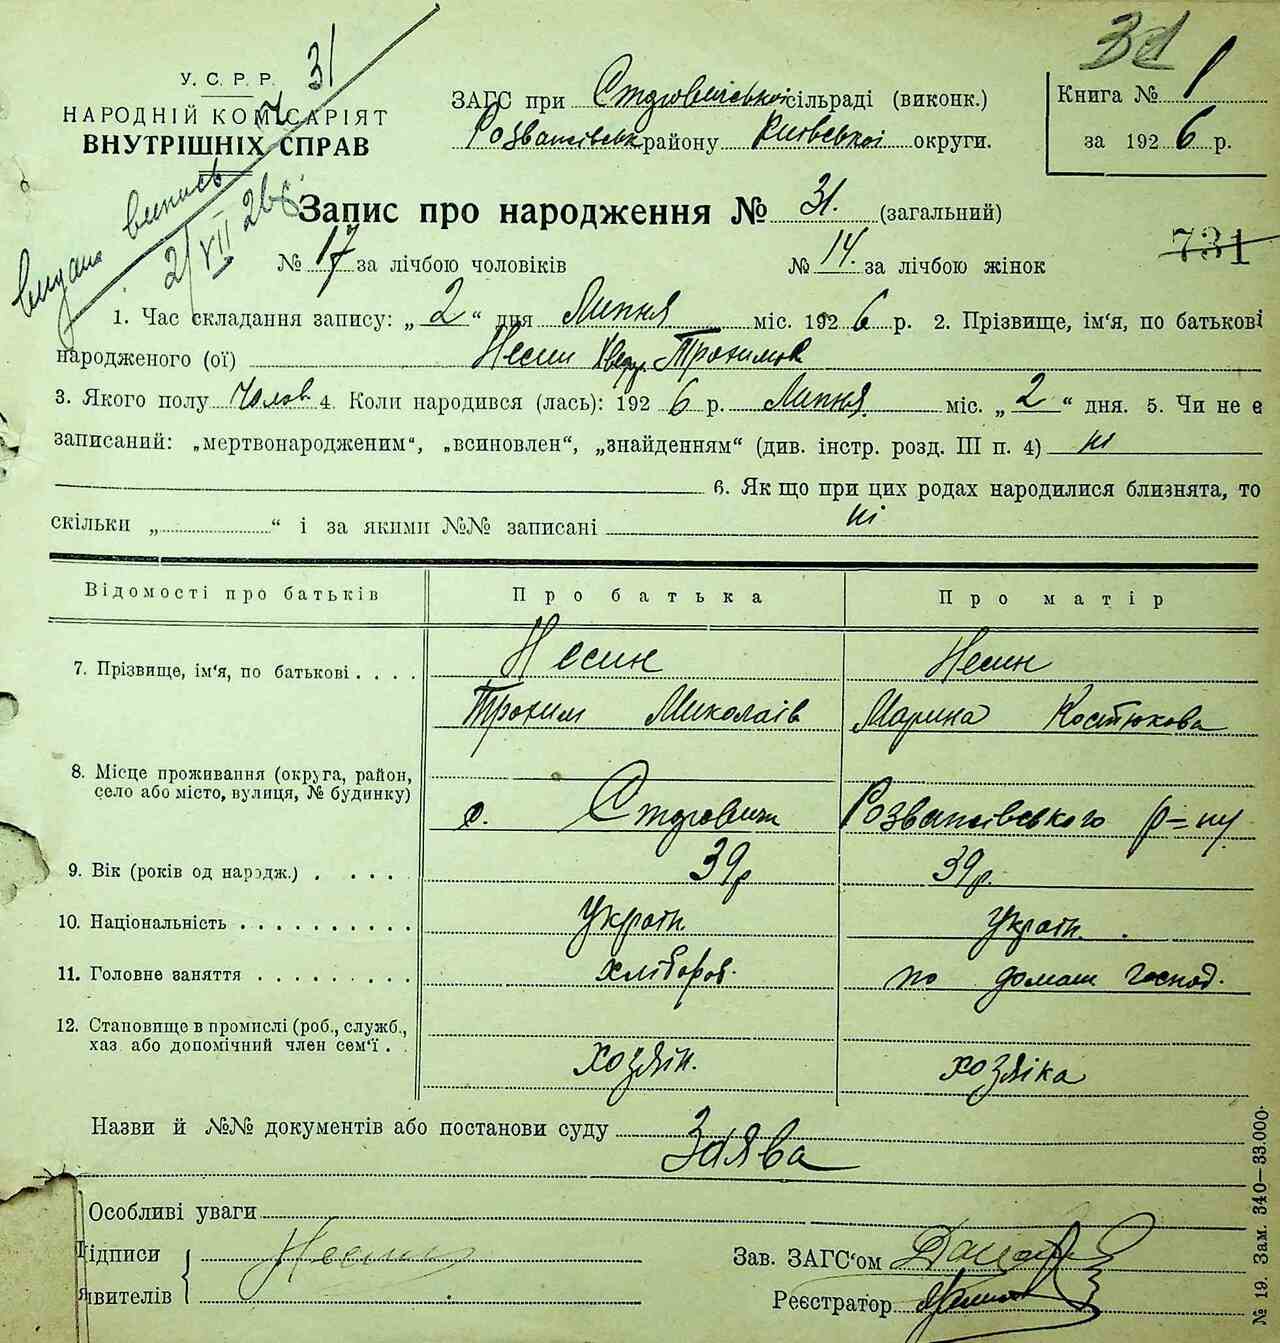 31
У. С. Р. Р.
НАРОДНІЙ КОМІСАРІЯТ
ВНУТРІШНІХ СПРАВ
видана випись
2/VII 26 р.
ЗАГС при сільраді (виконк.)
Розважівськ району Київської округи.
31
Книга № 1
за 1926 р.
Запис про народження № 31. (загальний)
731
№ 17 за лічбою чоловіків № 14. за лічбою жінок
1. Час складання запису: „2“ дня Липня міс. 1926 р. 2. Прізвище, ім'я, по батькові
народженого (ої) Несин Трохимов
3. Якого полу Чолов 4. Коли народився (лась): 1926 р. Липня міс. „2“ дня. 5. Чи не є
записаний: „мертвонародженим“, „всиновлен“, „знайденням“ (див. інстр. розд. III п. 4) ні
6. Як що при цих родах народилися близнята, то
скільки „ “ і за якими №№ записані ні
Відомості про батьків Про батька Про матір
7. Прізвище, ім'я, по батькові . . . . Несин Несин
Трохим Миколаїв Марина Костюкова
8. Місце проживання (округа, район,
село або місто, вулиця, № будинку)
с. Розважівського р=ну
9. Вік (років од народж.) . . . . . 39р 39р.
10. Національність . . . . . . . . . . Україн. Україн.
11. Головне заняття . . . . . . . . . хлібороб. по домаш господ.
12. Становище в промислі (роб., служб.,
хаз або допомічний член сем'ї . .
хозяїн. хозяїка
Назви й №№ документів або постанови суду
Заява
Особливі уваги
Підписи Несин
явителів
Зав. ЗАГС'ом
Реєстратор
№ 19. Зам. 340—33.000.